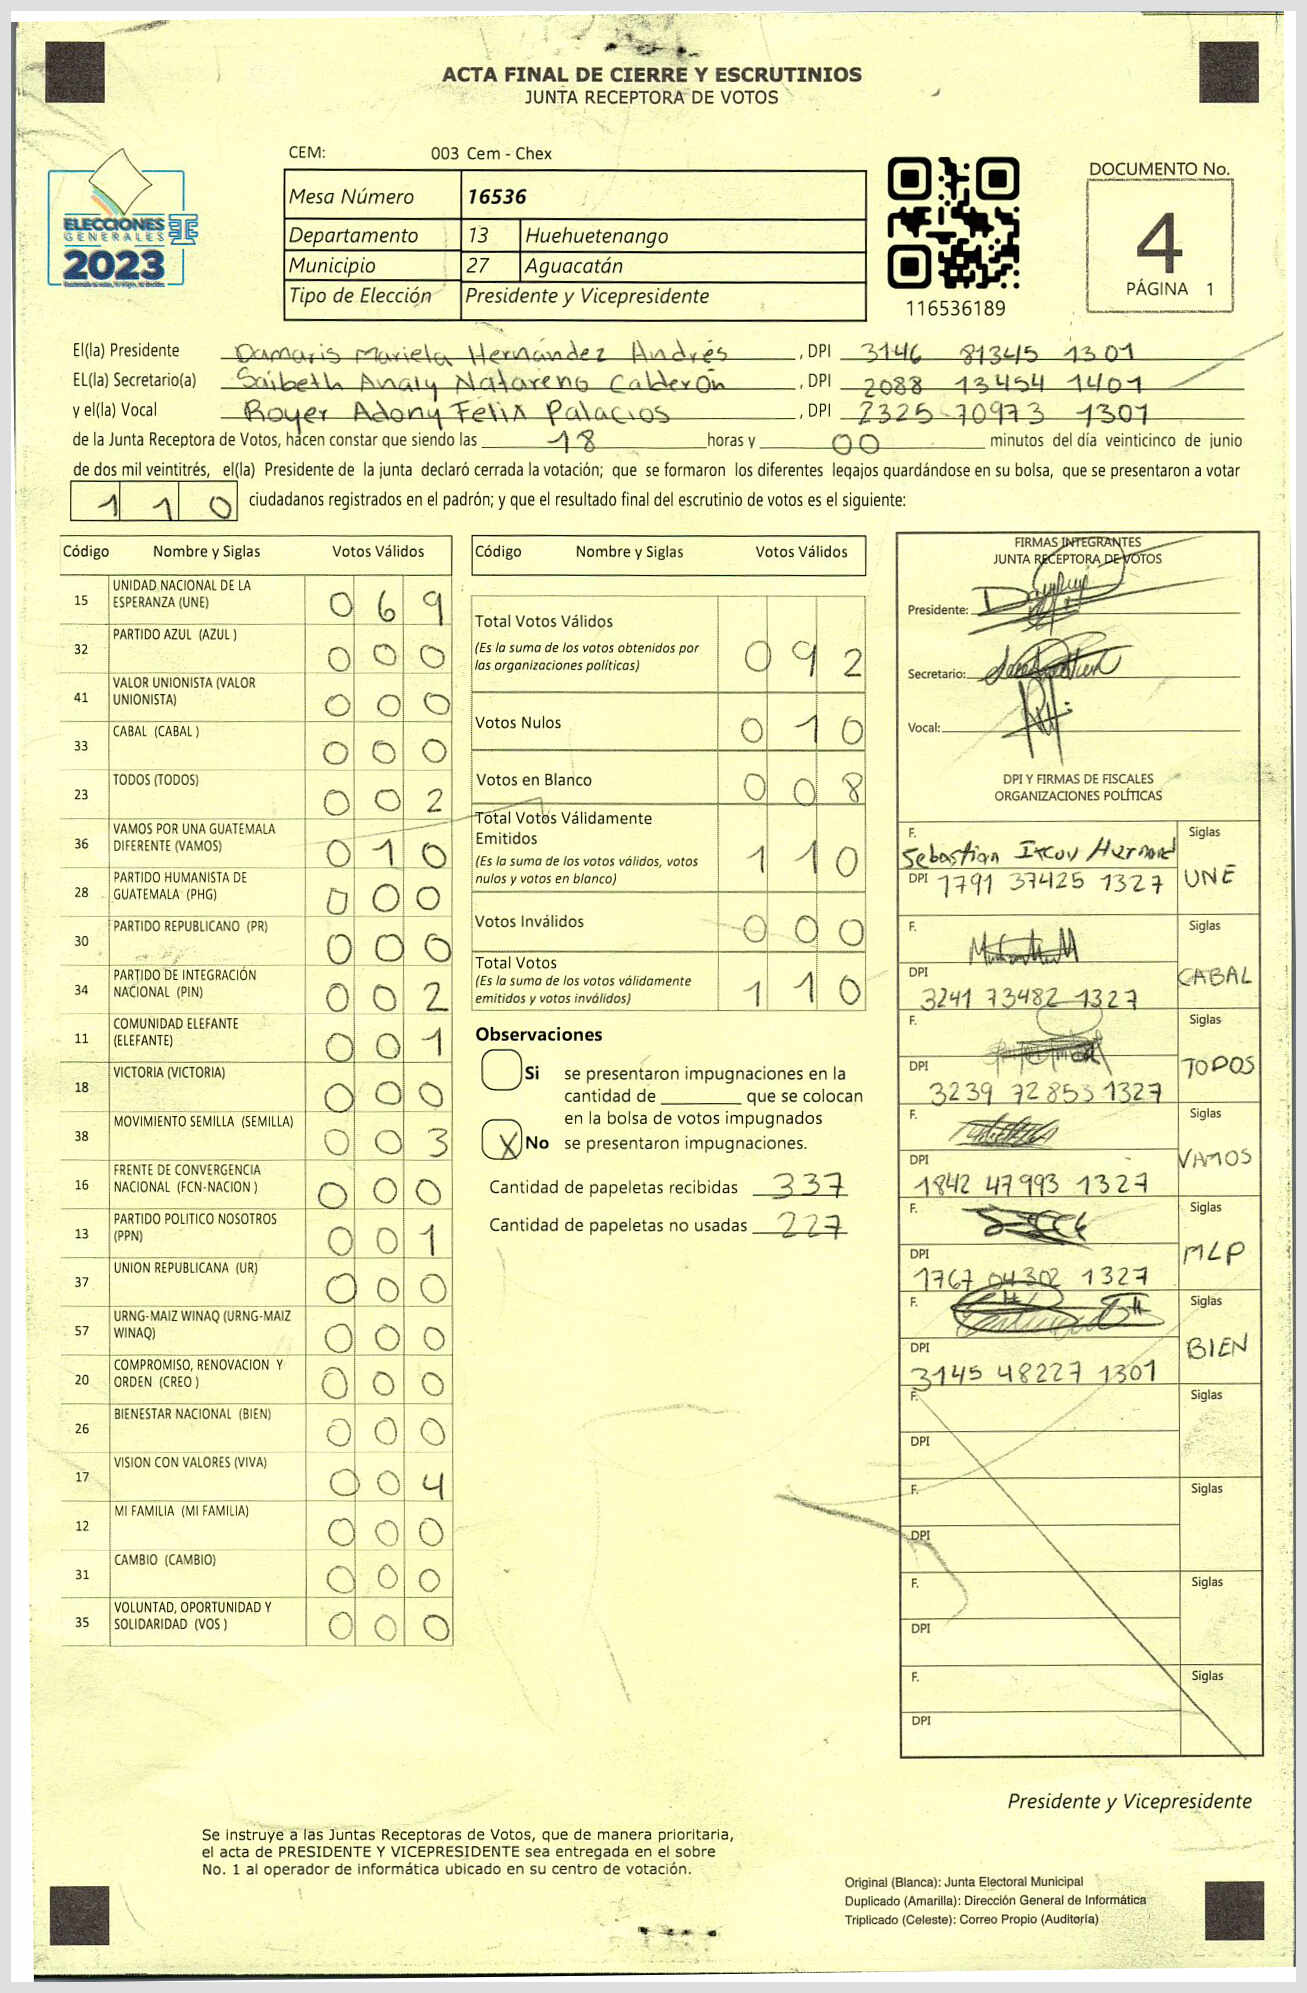 ACTA FINAL DE CIERRE Y ESCRUTINIOS
JUNTA RECEPTORA DE VOTOS
ELECCIONES
GENERALES
2023
CEM: 003 Cem - Chex
Mesa Número 16536
Departamento 13 Huehuetenango
Municipio 27 Aguacatán
Tipo de Elección Presidente y Vicepresidente
116536189
DOCUMENTO No.
4
PÁGINA 1
El(la) Presidente Damaris Mariela Hernández Andrés , DPI 3146 81345 1301
EL(la) Secretario(a) Saibeth Analy Natareno Calderón , DPI 2088 13454 1401
y el(la) Vocal Royer Adony Felix Palacios , DPI 2325 70973 1301
de la Junta Receptora de Votos, hacen constar que siendo las 18 horas y 00 minutos del día veinticinco de junio
de dos mil veintitrés, el(la) Presidente de la junta declaró cerrada la votación; que se formaron los diferentes legajos guardándose en su bolsa, que se presentaron a votar
110 ciudadanos registrados en el padrón; y que el resultado final del escrutinio de votos es el siguiente:
Código Nombre y Siglas Votos Válidos
15 UNIDAD NACIONAL DE LA ESPERANZA (UNE) 069
32 PARTIDO AZUL (AZUL ) 000
41 VALOR UNIONISTA (VALOR UNIONISTA) 000
33 CABAL (CABAL ) 000
23 TODOS (TODOS) 002
36 VAMOS POR UNA GUATEMALA DIFERENTE (VAMOS) 010
28 PARTIDO HUMANISTA DE GUATEMALA (PHG) 000
30 PARTIDO REPUBLICANO (PR) 000
34 PARTIDO DE INTEGRACIÓN NACIONAL (PIN) 002
11 COMUNIDAD ELEFANTE (ELEFANTE) 001
18 VICTORIA (VICTORIA) 000
38 MOVIMIENTO SEMILLA (SEMILLA) 003
16 FRENTE DE CONVERGENCIA NACIONAL (FCN-NACION ) 000
13 PARTIDO POLITICO NOSOTROS (PPN) 001
37 UNION REPUBLICANA (UR) 000
57 URNG-MAIZ WINAQ (URNG-MAIZ WINAQ) 000
20 COMPROMISO, RENOVACION Y ORDEN (CREO ) 000
26 BIENESTAR NACIONAL (BIEN) 000
17 VISION CON VALORES (VIVA) 004
12 MI FAMILIA (MI FAMILIA) 000
31 CAMBIO (CAMBIO) 000
35 VOLUNTAD, OPORTUNIDAD Y SOLIDARIDAD (VOS ) 000
Código Nombre y Siglas Votos Válidos
Total Votos Válidos 092
(Es la suma de los votos obtenidos por
las organizaciones políticas)
Votos Nulos 010
Votos en Blanco 008
Total Votos Válidamente
Emitidos 110
(Es la suma de los votos válidos, votos
nulos y votos en blanco)
Votos Inválidos 000
Total Votos 110
(Es la suma de los votos válidamente
emitidos y votos inválidos)
Observaciones
Si se presentaron impugnaciones en la
cantidad de ________ que se colocan
en la bolsa de votos impugnados
X No se presentaron impugnaciones.
Cantidad de papeletas recibidas 337
Cantidad de papeletas no usadas 227
FIRMAS INTEGRANTES
JUNTA RECEPTORA DE VOTOS
Presidente:
Secretario:
Vocal:
DPI Y FIRMAS DE FISCALES
ORGANIZACIONES POLÍTICAS
F. Sebastian Siglas
DPI 1791 37425 1327 UNE
F. Siglas
DPI 3241 73482 1327 CABAL
F. Siglas
DPI 3239 72853 1327 TODOS
F. Siglas
DPI 1842 47993 1327 VAMOS
F. Siglas
DPI 1767 04302 1327 MLP
F. Siglas
DPI 3145 48227 1301 BIEN
F. Siglas
DPI
F. Siglas
DPI
F. Siglas
DPI
F. Siglas
DPI
Presidente y Vicepresidente
Se instruye a las Juntas Receptoras de Votos, que de manera prioritaria,
el acta de PRESIDENTE Y VICEPRESIDENTE sea entregada en el sobre
No. 1 al operador de informática ubicado en su centro de votación.
Original (Blanca): Junta Electoral Municipal
Duplicado (Amarilla): Dirección General de Informática
Triplicado (Celeste): Correo Propio (Auditoría)